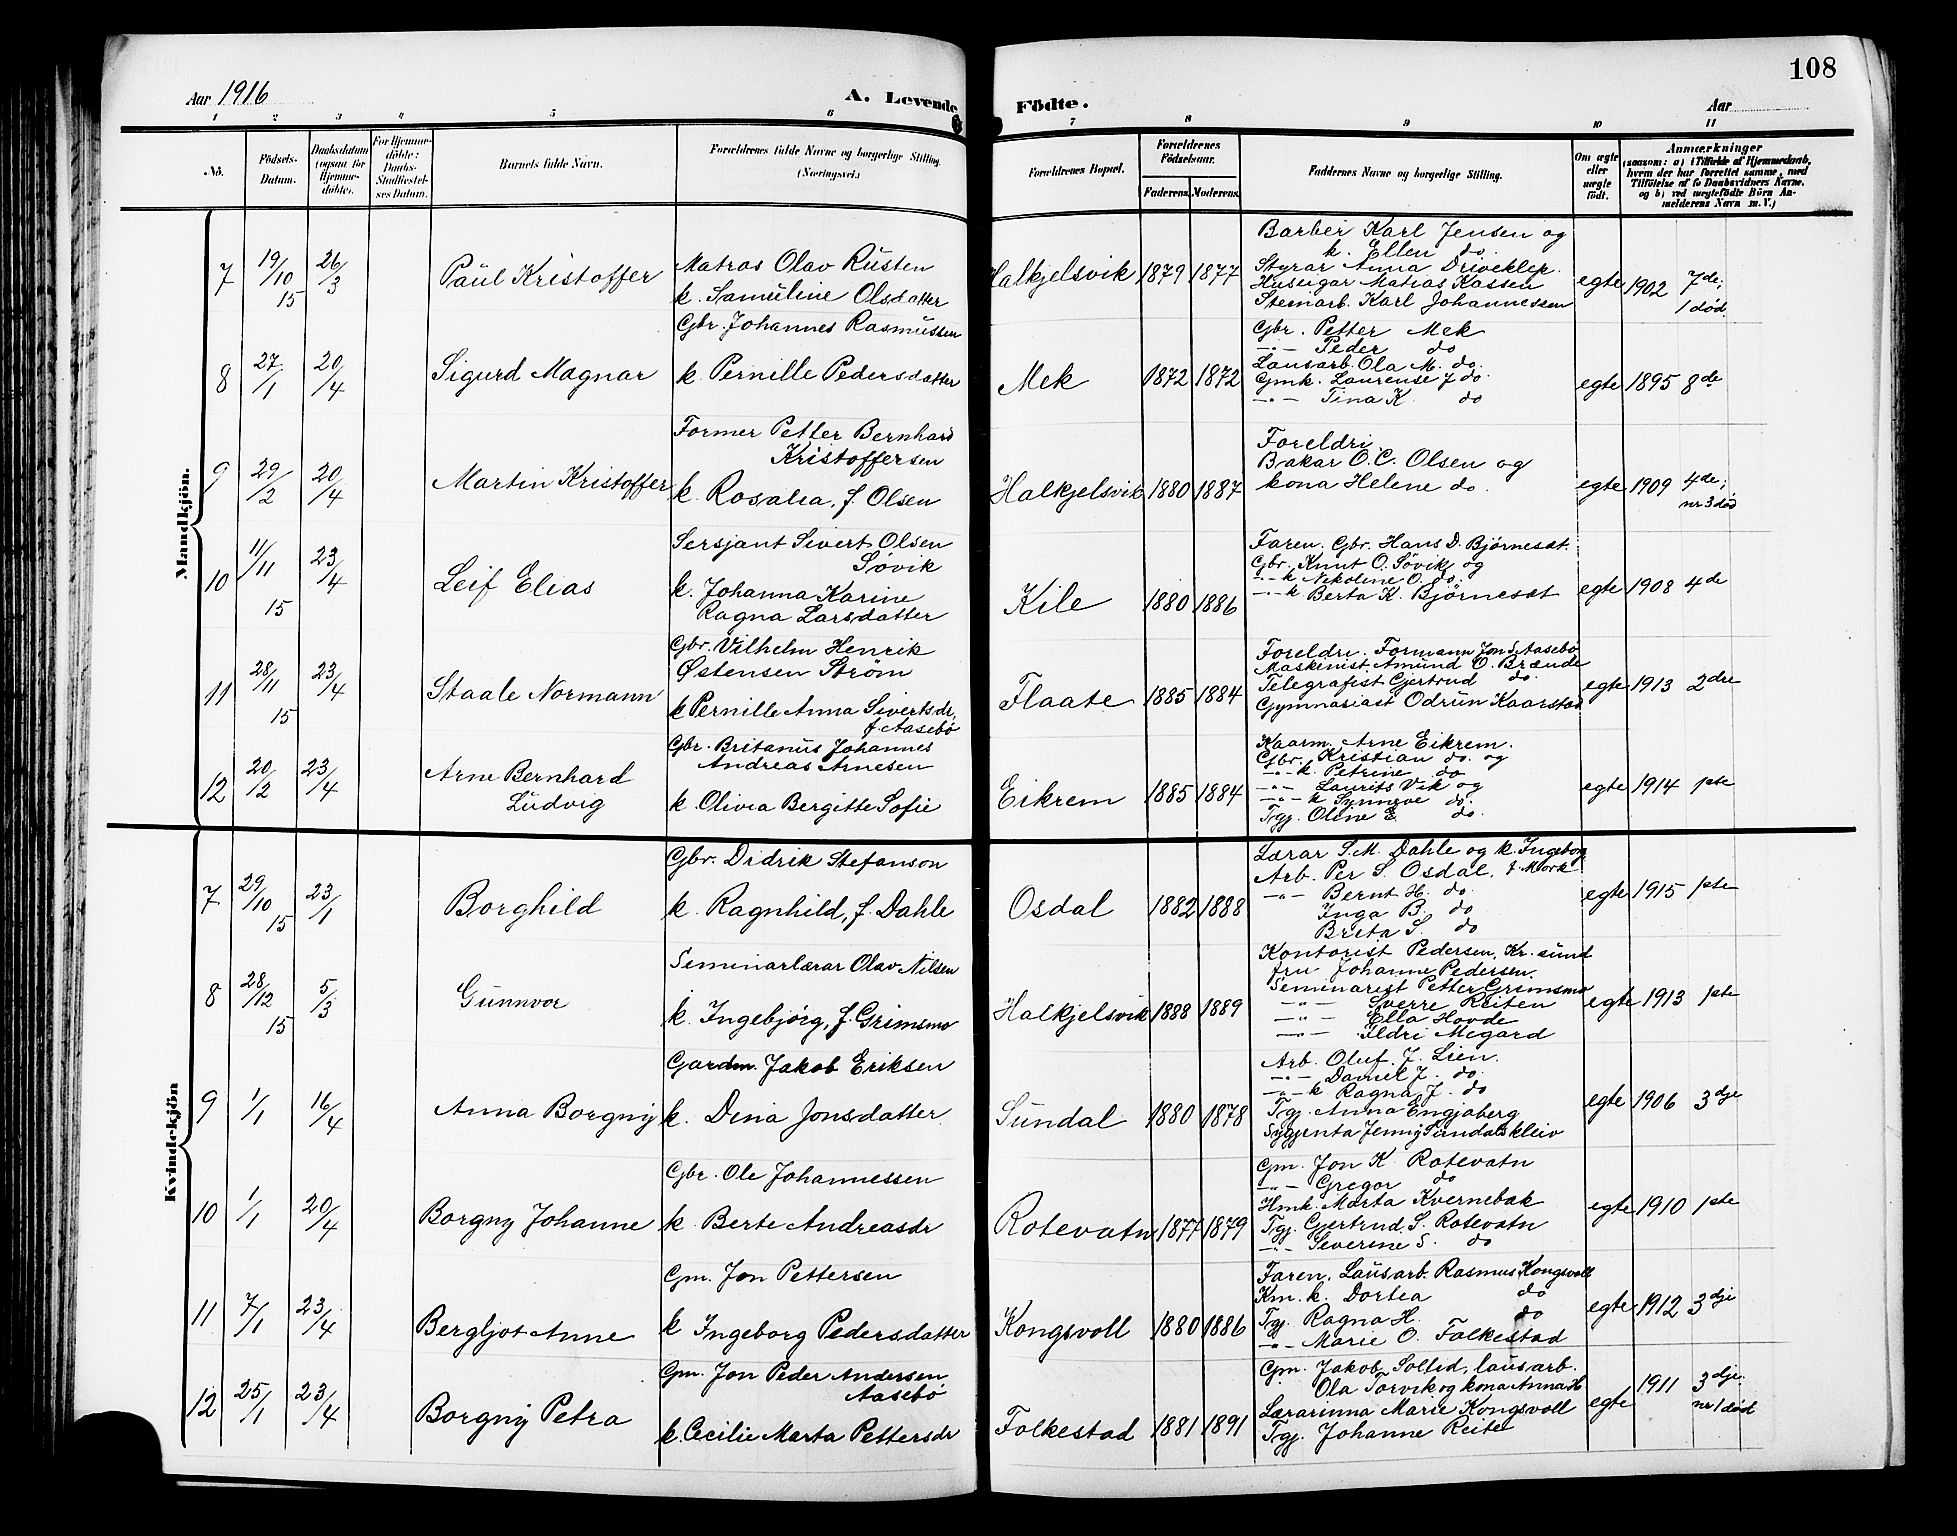 108
Aar 1916
A. Levende Födte.
Aar
1 2 3 4 5 6 7 8 9 10 11
No.
Födsels-Datum.
Daabsdatum (ogsaa for Hjemme-döbte).
For Hjemme-döbte: Daabs-Stadfæstel-ses Datum.
Barnets fulde Navn.
Forældrenes fulde Navne og borgerlige Stilling. (Næringsvei.)
Forældrenes Bopæl.
Forældrenes Födselsaar.
Faderens. Moderens.
Faddernes Navne og borgerlige Stilling.
Om ægte eller uægte födt.
Anmærkninger
(saasom: a) i Tilfælde af Hjemmedaab, hvem der har forrettet samme, med Tilföielse af to Daabsvidners Navne, og b) ved uægtefödte Börn Anmelderens Navn m. V.)
Mandkjön.
7 19/10 15 26/3 Paul Kristoffer
Matros Olav Rusten
k. Samuline Olsdatter
Halkjelsvik 1879 1877
Barber Karl Jensen og
k. Ellen do.
Styrar Anna Driveklep.
Huseigar Matias Kassen
Steinarb. Karl Johannessen
egte 1902 7de; 1 död.
8 27/1 20/4 Sigurd Magnar
Gbr. Johannes Rasmussen
k. Pernille Pedersdatter
Mek 1872 1872
Gbr. Petter Mek
-"- Peder do
Lausarb. Ola M. do.
Gmk. Laurense J do.
-"- Tina K do
egte 1895 8de
9 29/2 20/4 Martin Kristoffer
Former Petter Bernhard
Kristoffersen
k. Rosalia, f. Olsen
Halkjelsvik 1880 1887
Foreldri
Bakar O.C. Olsen og
kona Helene do.
egte 1909 4de; nr 3 död
10 11/11 15 23/4 Leif Elias
Sersjant Sivert Olsen
Søvik
k. Johanna Karine
Ragna Larsdatter
Kile 1880 1886
Faren. Gbr. Hans D. Bjørneset.
Gbr. Knut O. Søvik og
-"- k Nikoline O. do.
-"- k Berta K. Bjørneset
egte 1908 4de
11 28/11 15 23/4 Staale Normann
Gbr. Vilhelm Henrik
Østensen Strøm
k Pernille Anna Sivertsdr,
f. Aasebö
Flaate 1885 1884
Foreldri. Formann Jon S. Aasebö
Maskinist Amund O. Brænde
Telegrafist Gjertrud do.
Gymnasiast Odrun Kaarstad
egte 1913 2dre
12 20/2 23/4 Arne Bernhard
Ludvig
Gbr. Britanus Johannes
Andreas Arnesen
k. Olivia Bergitte Sofie
Eikrem 1885 1884
Kaarm. Arne Eikrem.
Gbr. Kristian do. og
-"- k. Petrine do
-"- Laurits Vik og
-"- k Synnøve do.
Tgj. Oline E. do.
egte 1914 1ste
Kvindekjön
7 29/10 15 23/1 Borghild
Gbr. Didrik Stefanson
k. Ragnhild, f. Dahle
Osdal 1882 1888
Lærar S.M. Dahle og k. Ingeborg
Arb. Per S. Osdal, f. Mork
-"- Bernt H. do.
Inga B. do
Brita S. do
egte 1915 1ste
8 28/12 15 5/3 Gunnvor
Seminarlærar Olav Nilsen
k. Ingebjörg, f. Grimsmo
Halkjelsvik 1888 1889
Kontorist Pedersen, Kr.sund
fru Johanne Pedersen.
Seminarist Petter Grimsmo
-"- Sverre Reiten
-"- Ella Hovde
-"- Ildri Megard
egte 1913 1ste
9 1/1 16/4 Anna Borgny
Gardm. Jakob Eriksen
k. Dina Jonsdatter
Sundal 1880 1878
Arb. Oluf J. Lien.
-"- Daniel J. do.
-"- k Ragna J. do
Tgj. Anna Engjaberg
Sygjenta Jenny Sundalskleiv
egte 1906 3dje
10 1/1 20/4 Borgny Johanne
Gbr. Ole Johannessen
k. Berte Andreasdr
Rotevatn 1877 1879
Gm. Jon K. Rotevatn
-"- Gregor do
Hmk. Marta Kvernebak
Tgj. Gjertrud S. Rotevatn
-"- Severine S. do
egte 1910 1ste
11 7/1 23/4 Bergljot Anne
Gm. Jon Pettersen
k Ingeborg Pedersdatter
Kongsvoll 1880 1886
Faren. Lausarb. Rasmus Kongsvoll
Km. k. Dortea do
Tgj. Ragna H. do
-"- Marie O. Folkestad
egte 1912 3dje
12 25/1 23/4 Borgny Petra
Gm. Jon Peder Andersen
Aasebö
k. Cecilie Marta Pettersdr
Folkestad 1881 1891
Gm. Jakob Soltid, lausarb.
Ola Torvik og kona Anna H
Lærarinna Marie Kongsvoll
Tgj. Johanne Reite
egte 1911 3dje. nr 1 död